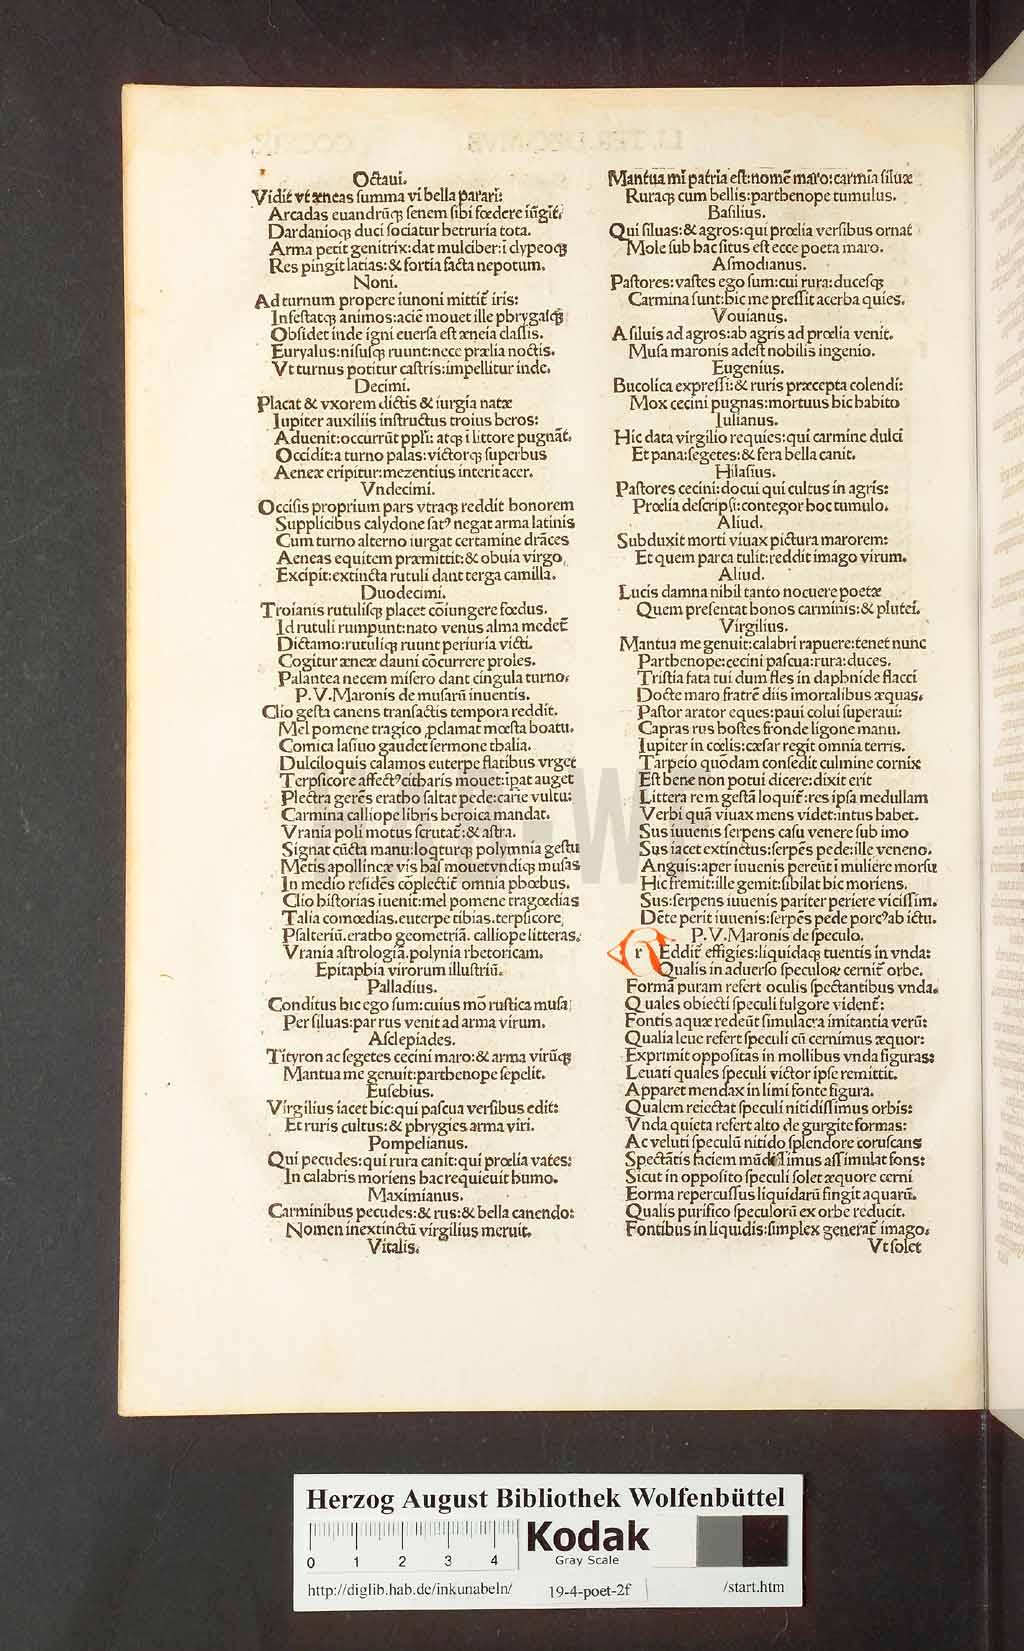 Octaui.
Vidit vt æneas summa vi bella parari:
Arcadas euandrūq; senem sibi fœdere iūgit.
Dardanioq; duci sociatur hetruria tota.
Arma petit genitrix: dat mulciber: i clypeoq;
Res pingit latias: & fortia facta nepotum.
Noni.
Ad turnum propere iunoni mittit̄ iris:
Infestatq; animos: aciē mouet ille phrygasq;
Obsidet inde igni euersa est æneia classis.
Euryalus: nisusq; ruunt: nece prælia noctis.
Vt turnus potitur castris: impellitur inde.
Decimi.
Placat & vxorem dictis & iurgia natæ
Iupiter auxiliis instructus troius heros:
Aduenit: occurrūt ppli: atq; i littore pugnāt.
Occidit: a turno palas: victorq; superbus
Aeneæ eripitur: mezentius interit acer.
Vndecimi.
Occisis proprium pars vtraq; reddit honorem
Supplicibus calydone satꝰ negat arma latinis
Cum turno alterno iurgat certamine drāces
Aeneas equitem præmittit: & obuia virgo,
Excipit: extincta rutuli dant terga camilla.
Duodecimi.
Troianis rutulisq; placet cōiungere fœdus.
Id rutuli rumpunt: nato venus alma medet̄
Dictamo: rutuliq; ruunt periuria victi.
Cogitur æneæ dauni cōcurrere proles.
Palantea necem misero dant cingula turno.
P. V. Maronis de musarū inuentis.
Clio gesta canens transactis tempora reddit.
Mel pomene tragico ꝓclamat mœsta boatu.
Comica lasiuo gaudet sermone thalia.
Dulciloquis calamos euterpe flatibus vrget
Terpsicore affectꝰ citharis mouet: īpat auget
Plectra gerēs eratho saltat pede: carīe vultu:
Carmina calliope libris heroica mandat.
Vrania poli motus scrutat̄: & astra.
Signat cūcta manu: loqturq; polymnia gestu
Mētis apollineæ vis has mouet vndiq; musas
In medio residēs cōplectit̄ omnia phœbus.
Clio historias iuenit: mel pomene tragœdias
Talia comœdias. euterpe tibias. terpsicore,
Psalteriū. eratho geometriā. calliope litteras.
Vrania astrologiā. polynia rhetoricam.
Epitaphia virorum illustriū.
Palladius.
Conditus hic ego sum: cuius mō rustica musa
Per siluas: par rus venit ad arma virum.
Asclepiades.
Tityron ac segetes cecini maro: & arma virūq;
Mantua me genuit: parthenope sepelit.
Eusebius.
Virgilius iacet hic: qui pascua versibus edit:
Et ruris cultus: & phrygies arma viri.
Pompelianus.
Qui pecudes: qui rura canit: qui prœlia vates:
In calabris moriens hac requieuit humo.
Maximianus.
Carminibus pecudes: & rus: & bella canendo:
Nomen inextinctū virgilius meruit.
Vitalis.
Mantua mi patria est: nomē maro: carmīa siluæ
Ruraq; cum bellis: parthenope tumulus.
Basilius.
Qui siluas: & agros: qui prœlia versibus ornat
Mole sub hac situs est ecce poeta maro.
Asmodianus.
Pastores: vastes ego sum: cui rura: ducesq;
Carmina sunt: hic me pressit acerba quies.
Vouianus.
A siluis ad agros: ab agris ad prœlia venit.
Musa maronis adest nobilis ingenio.
Eugenius.
Bucolica expressi: & ruris præcepta colendi:
Mox cecini pugnas: mortuus hic habito
Iulianus.
Hic data virgilio requies: qui carmine dulci
Et pana: segetes: & fera bella canit.
Hilasius.
Pastores cecini: docui qui cultus in agris:
Prœlia descripsi: contegor hoc tumulo.
Aliud.
Subduxit morti viuax pictura marorem:
Et quem parca tulit: reddit imago virum.
Aliud.
Lucis damna nihil tanto nocuere poetæ
Quem presentat honos carminis: & plutei.
Virgilius.
Mantua me genuit: calabri rapuere: tenet nunc
Parthenope: cecini pascua: rura: duces.
Tristia fata tui dum fles in daphnide flacci
Docte maro fratrē diis imortalibus æquas.
Pastor arator eques: paui colui superaui:
Capras rus hostes fronde ligone manu.
Iupiter in cœlis: cæsar regit omnia terris.
Tarpeio quōdam consedit culmine cornix
Est bene non potui dicere: dixit erit
Littera rem gestā loquit̄: res ipsa medullam
Verbi quā viuax mens videt: intus habet.
Sus iuuenis serpens casu venere sub imo
Sus iacet extinctus: serpēs pede: ille veneno.
Anguis: aper iuuenis pereūt i muliere morsu
Hic fremit: ille gemit: sibilat hic moriens.
Sus: serpens iuuenis pariter periere vicissim.
Dēte perit iuuenis: serpēs pede porcꝰ ab ictu.
P. V. Maronis de speculo.
r Eddit̄ effigies: liquidaq; tuentis in vnda:
Qualis in aduerso speculoꝝ cernit̄ orbe.
Formā puram refert oculis spectantibus vnda.
Quales obiecti speculi fulgore vident̄:
Fontis aquæ redeūt simulacra imitantia verū:
Qualia leue refert speculi cū cernimus æquor:
Exprimit oppositas in mollibus vnda figuras:
Leuati quales speculi victor ipse remittit.
Apparet mendax in limi fonte figura.
Qualem reiectat speculi nitidissimus orbis:
Vnda quieta refert alto de gurgite formas:
Ac veluti speculū nitido splendore coruscans
Spectātis faciem mūdissimus assimulat fons:
Sicut in opposito speculi solet æquore cerni
Eorma repercussus liquidarū fingit aquarū.
Qualis purifico speculorū ex orbe reducit.
Fontibus in liquidis: simplex generat̄ imago.
Vt solet
HAB•WF
Herzog August Bibliothek Wolfenbüttel
0 1 2 3 4
Kodak
Gray Scale
http://diglib.hab.de/inkunabeln/ 19-4-poet-2f /start.htm